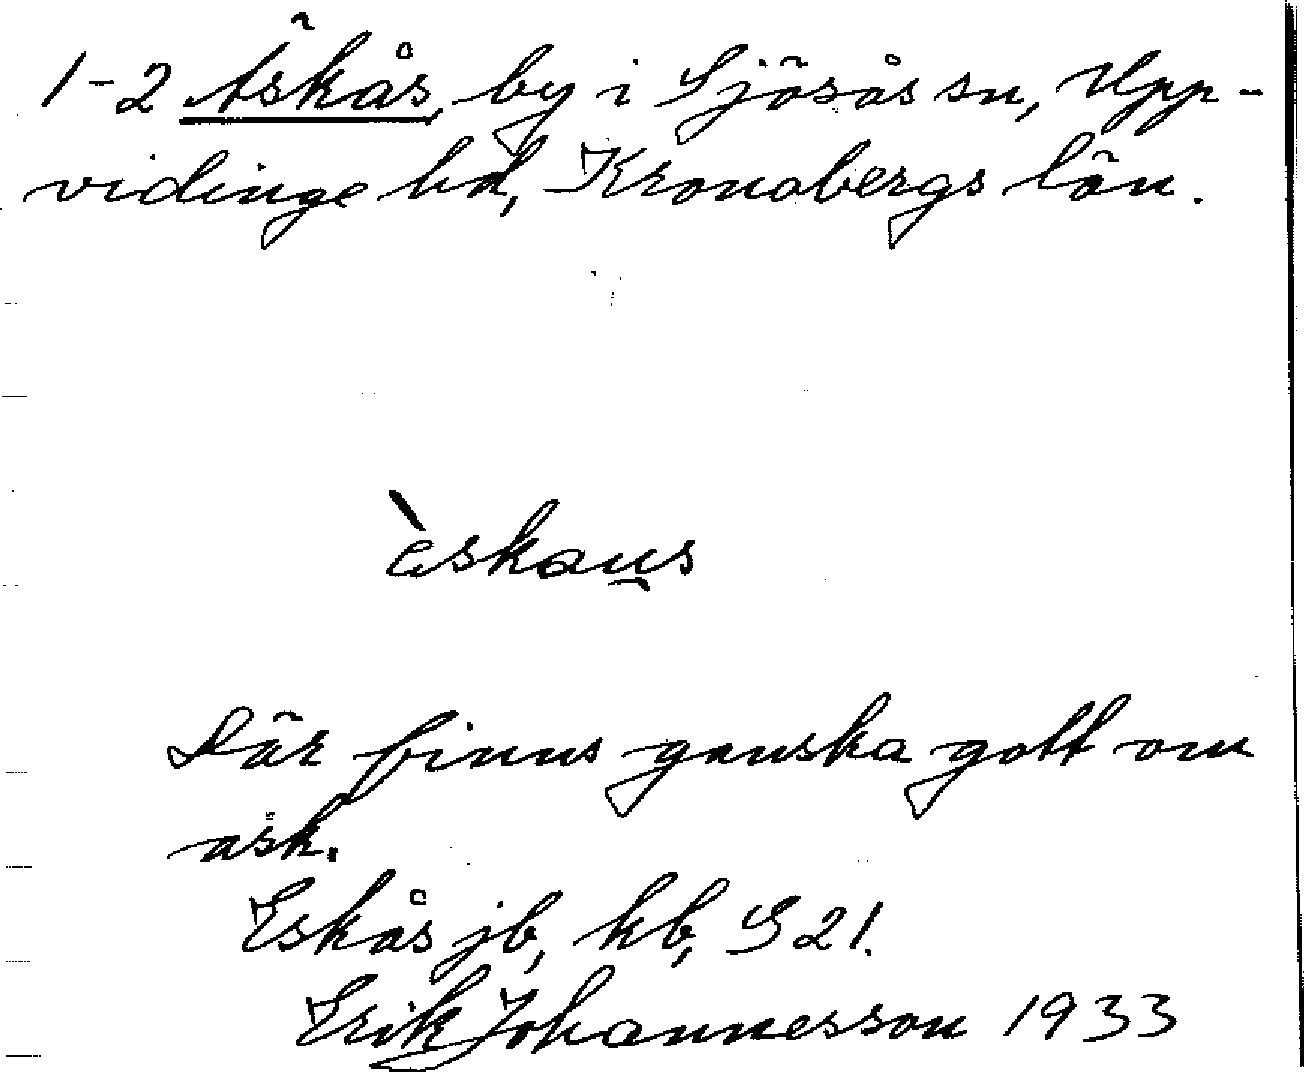 1-2 Äskås, by i Sjösås sn, Upp-
vidinge hd, Kronobergs län.
èskau̯s
Där finns ganska gott om
ask.
Eskås jb, kb, S 21.
Erik Johannesson 1933